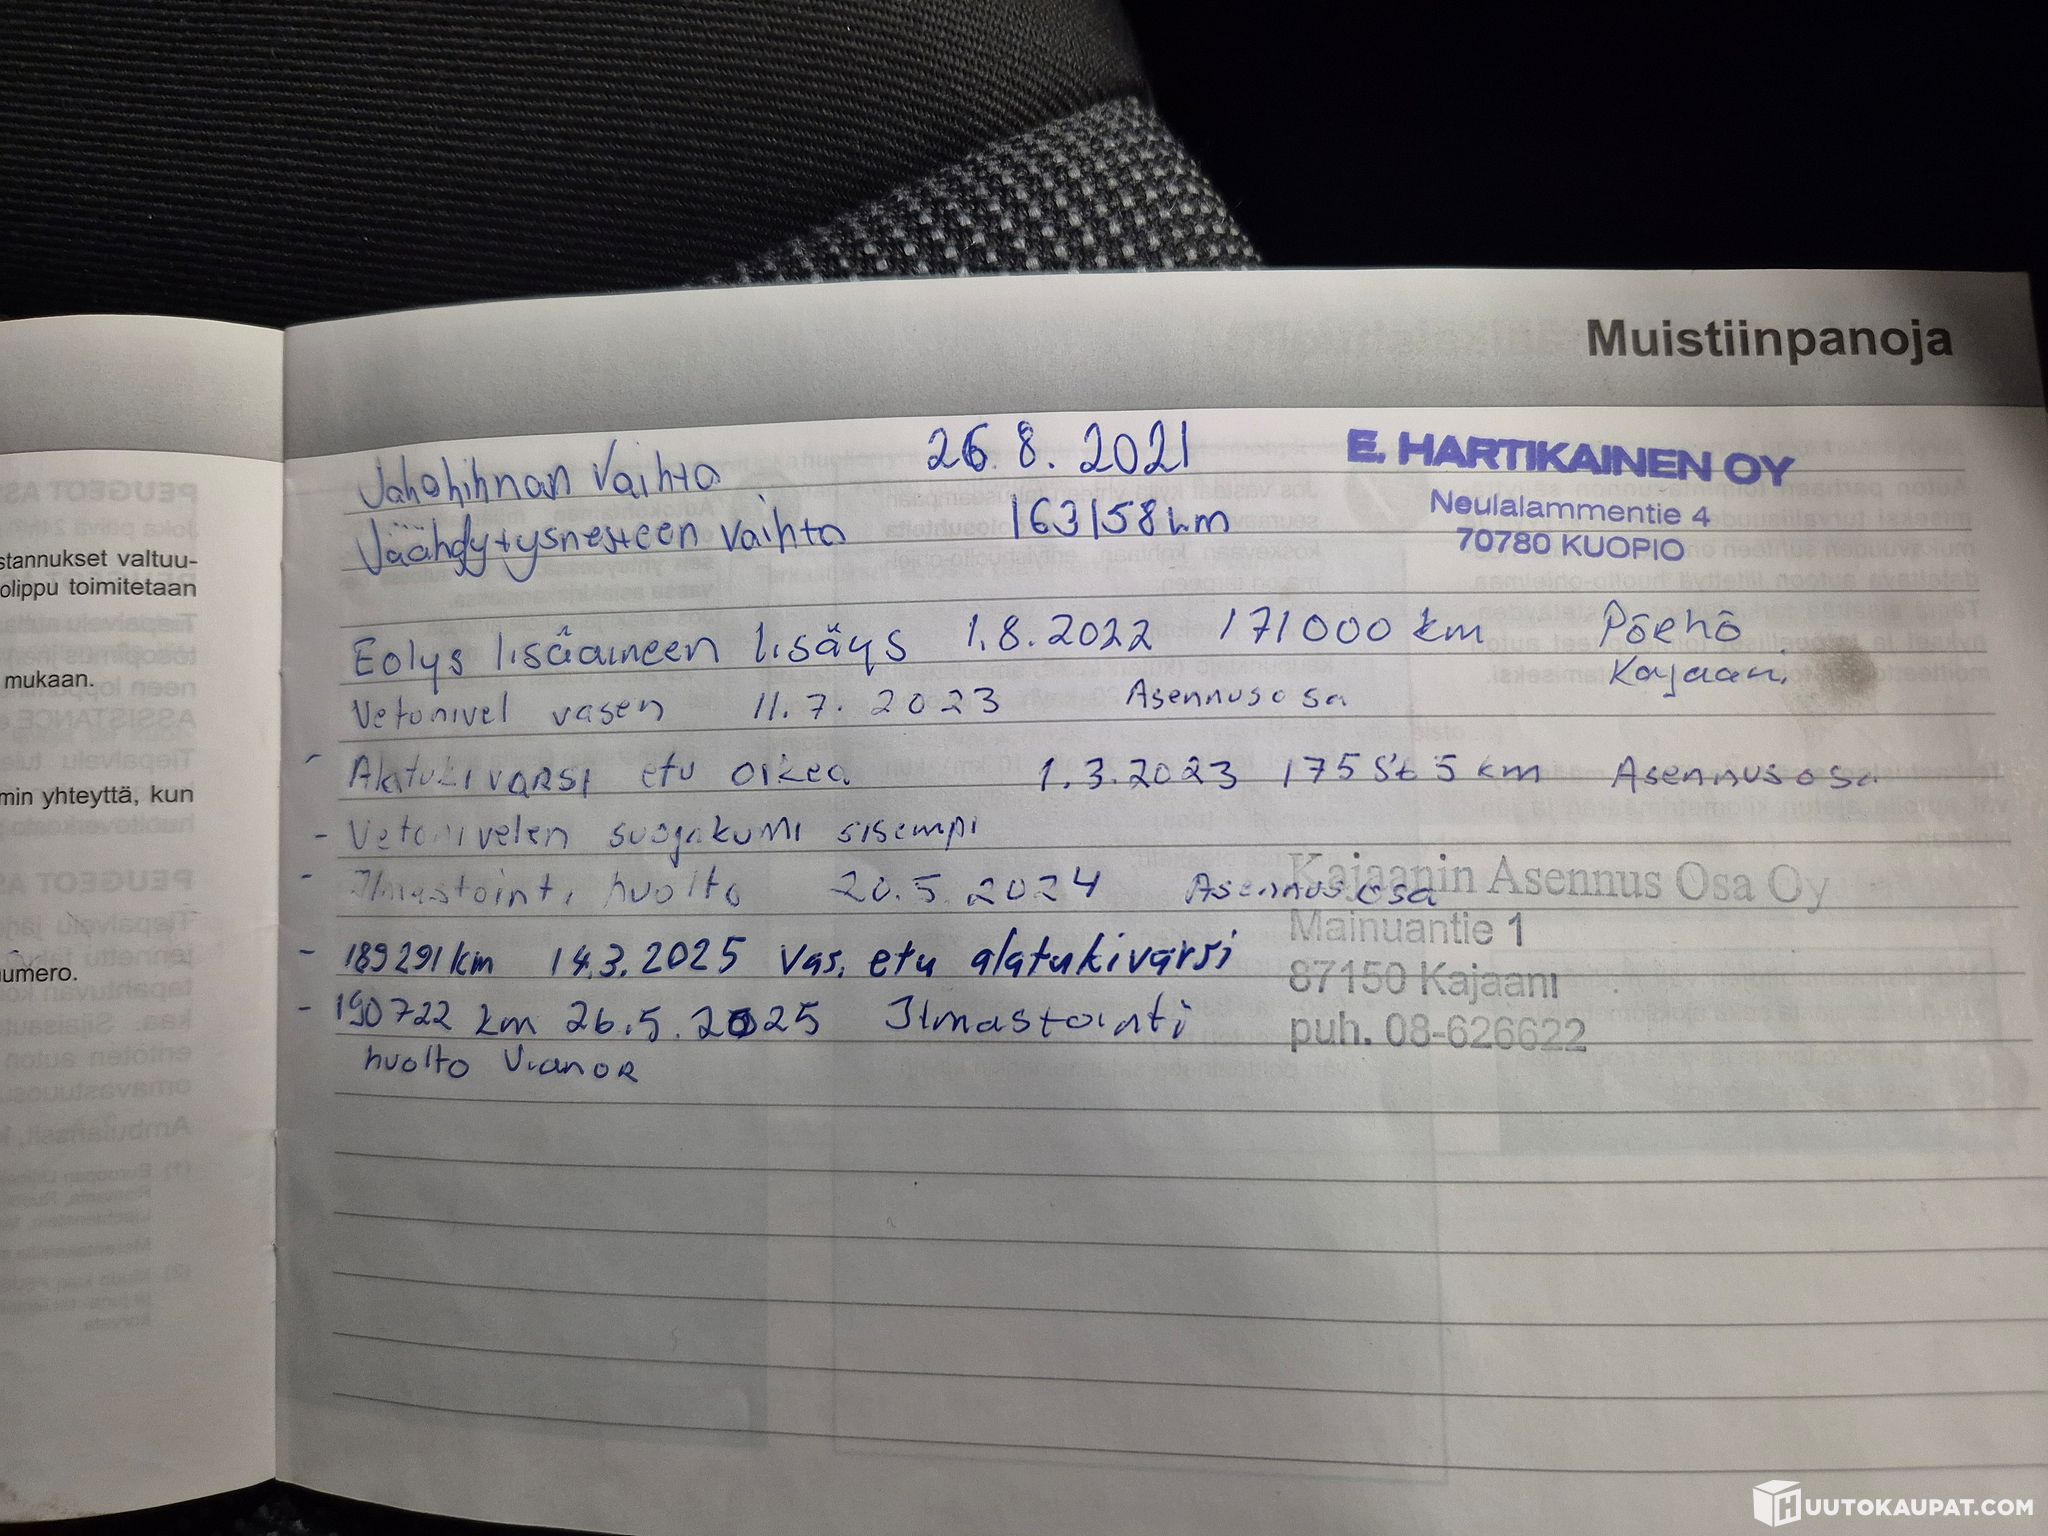 Muistiinpanoja
Jakohihnan vaihto 26.8.2021
Jäähdytysnesteen vaihto 163158km
E. HARTIKAINEN OY
Neulalammentie 4
70780 KUOPIO
Eolys lisäaineen lisäys 1.8.2022 171000 km Pörhö
Kajaani
Vetonivel vasen 11.7.2023 Asennusosa
- Alatukivarsi etu oikea 1.3.2023 km Asennusosa
- Vetonivelen suojakumi sisempi
- Ilmastointi huolto 20.5.2024 Asennusosa
Kajaanin Asennus Osa Oy
Mainuantie 1
87150 Kajaani
puh. 08-626622
- 189291km 14.3.2025 Vas. etu alatukivarsi
- 190722 km 26.5.2025 Ilmastointi
huolto Vianor
stannukset valtuu-
olippu toimitetaan
mukaan.
min yhteyttä, kun
numero.
HUUTOKAUPAT.COM